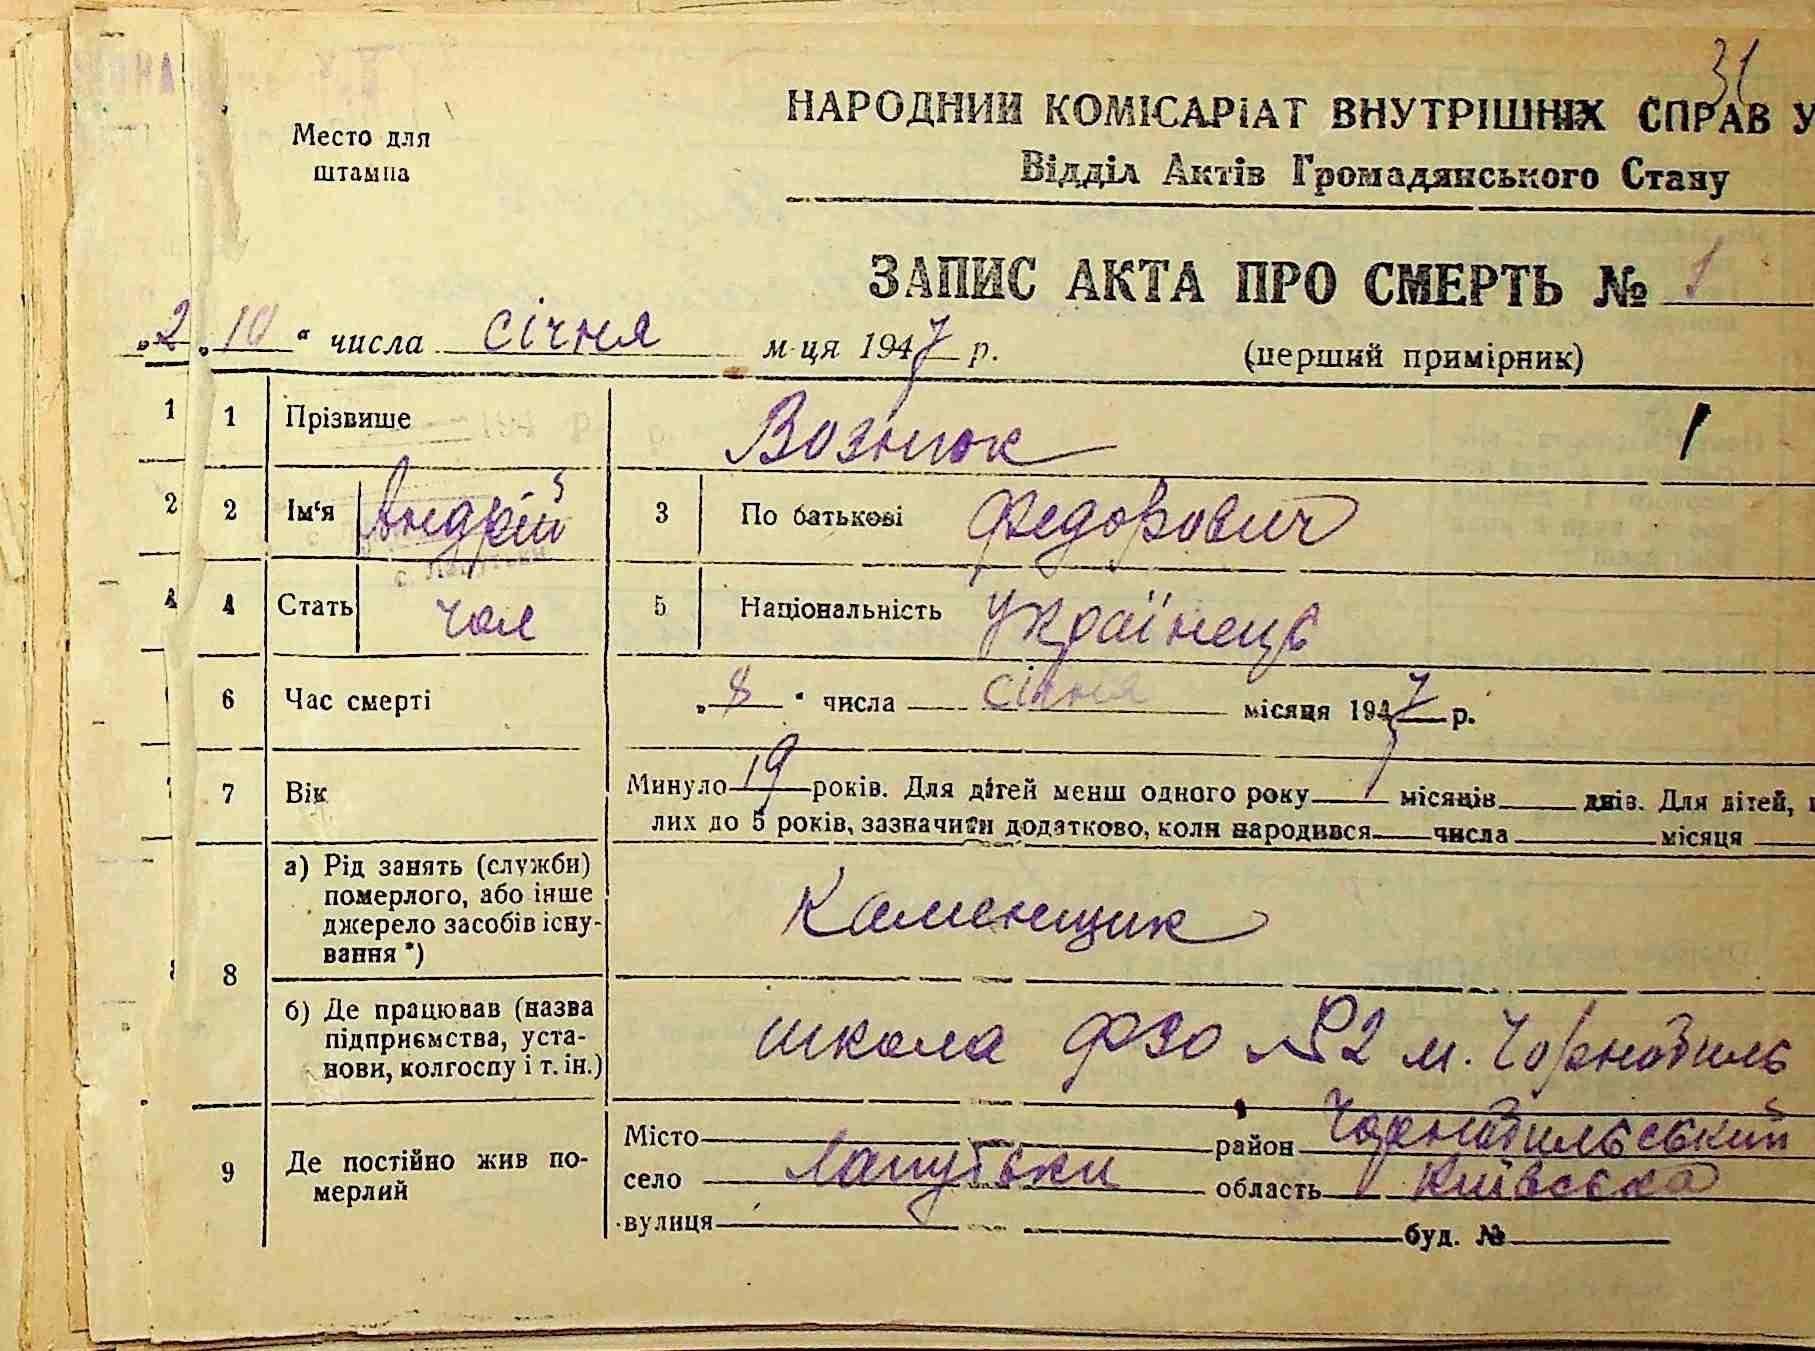 31
Место для
штампа
НАРОДНИЙ КОМІСАРІАТ ВНУТРІШНІХ СПРАВ У
Відділ Актів Громадянського Стану
ЗАПИС АКТА ПРО СМЕРТЬ № 1
„2 „10“ числа січня м-ця 1947 р. (перший примірник)
1 1 Прізвише Вознюк 1
2 2 Ім'я Андрій 3 По батькові Федорович
4 4 Стать чол 5 Національність Українець
6 Час смерті „8“ числа січня місяця 1947 р.
7 Вік Минуло 19 років. Для дітей менш одного року місяців днів. Для дітей,
лих до 5 років, зазначити додатково, коли народився числа місяця
8 а) Рід занять (служби)
померлого, або інше
джерело засобів існу-
вання *) Каменщик
б) Де працював (назва
підприємства, уста-
нови, колгоспу і т. ін.) школа ФЗО №2 м. Чорнобиль
9 Де постійно жив по-
мерлий
Місто район Чорнобильський
село Лапутьки область Київська
вулиця буд. №